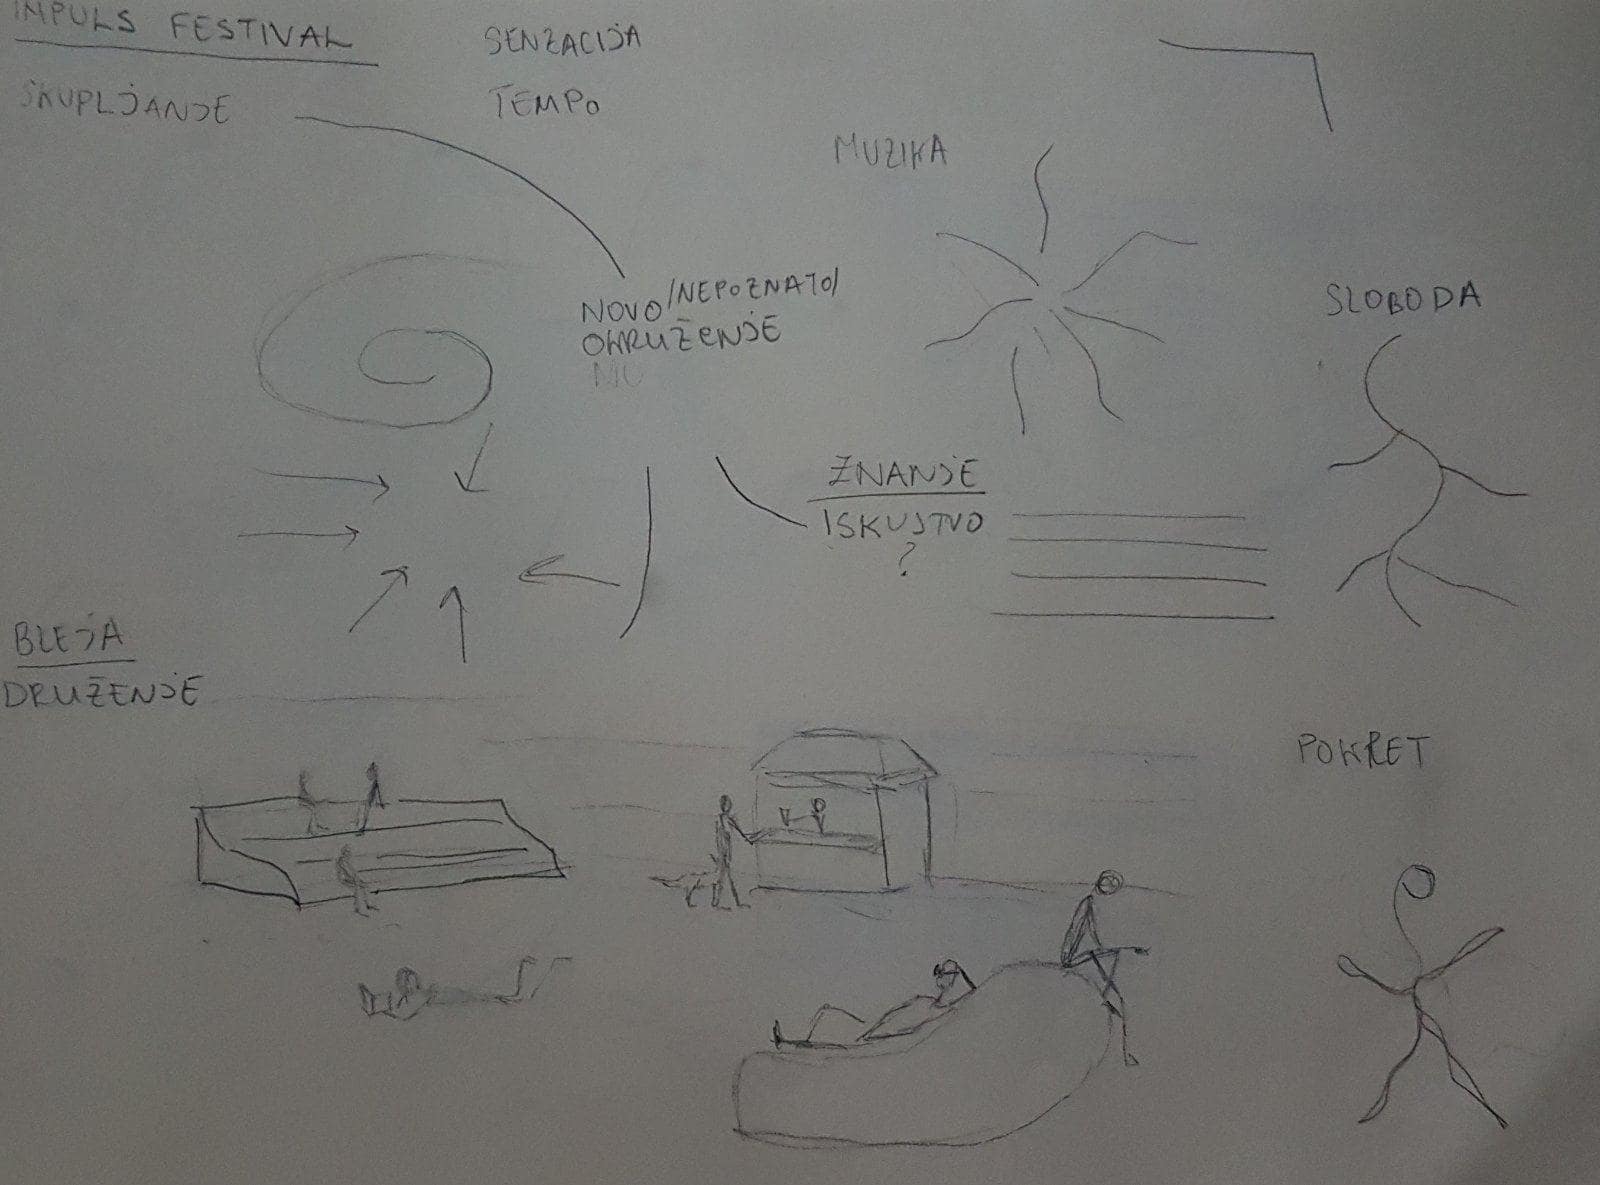 IMPULS FESTIVAL
SKUPLJANJE
SENZACIJA
TEMPO
MUZIKA
NOVO/NEPOZNATO/
OKRUŽENJE
SLOBODA
ZNANJE
ISKUSTVO
?
BLEJA
DRUŽENJE
POKRET